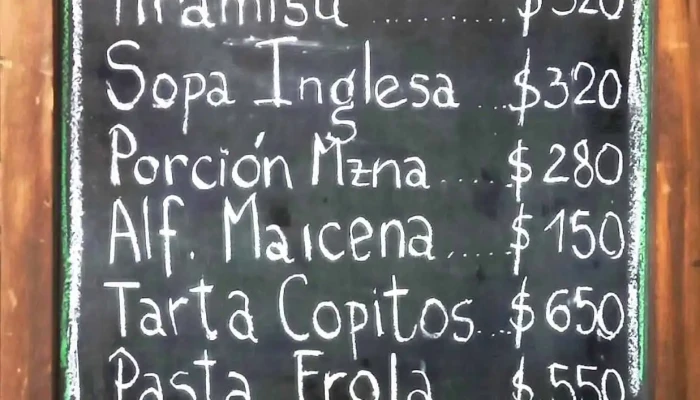 Tiramisú ......... $320
Sopa Inglesa ... $320
Porción Mzna ..... $280
Alf. Maicena ..... $150
Tarta Copitos ... $650
Pasta Frola $550